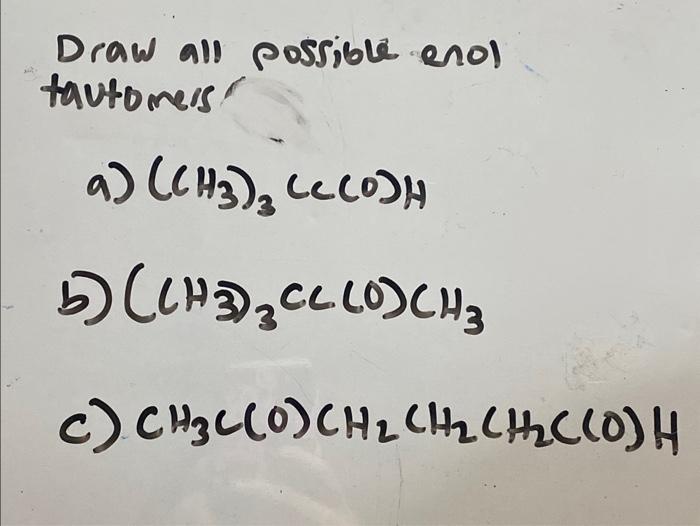 Draw all possible enol
tautomers
a) (CH3)3 CC(O)H
b) (CH3)3CC(O)CH3
c) CH3C(O)CH2CH2CH2C(O)H